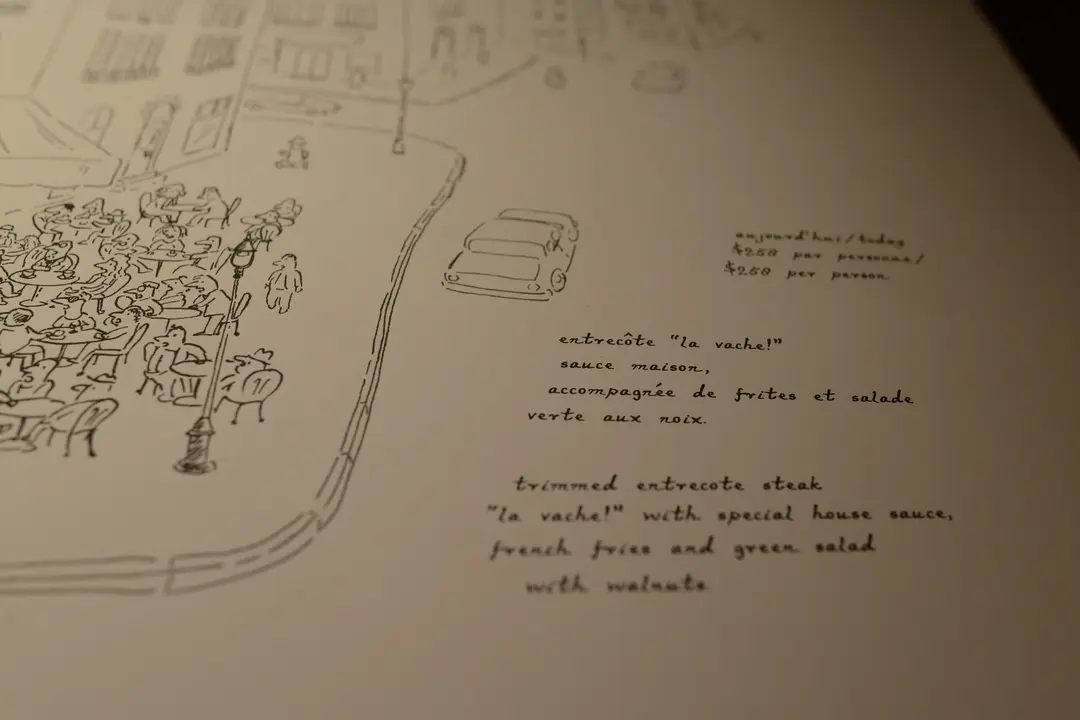 aujourd'hui/today
$258 par personne/
$258 per person
entrecôte "la vache!"
sauce maison,
accompagnée de frites et salade
verte aux noix.
trimmed entrecote steak
"la vache!" with special house sauce,
french fries and green salad
with walnuts